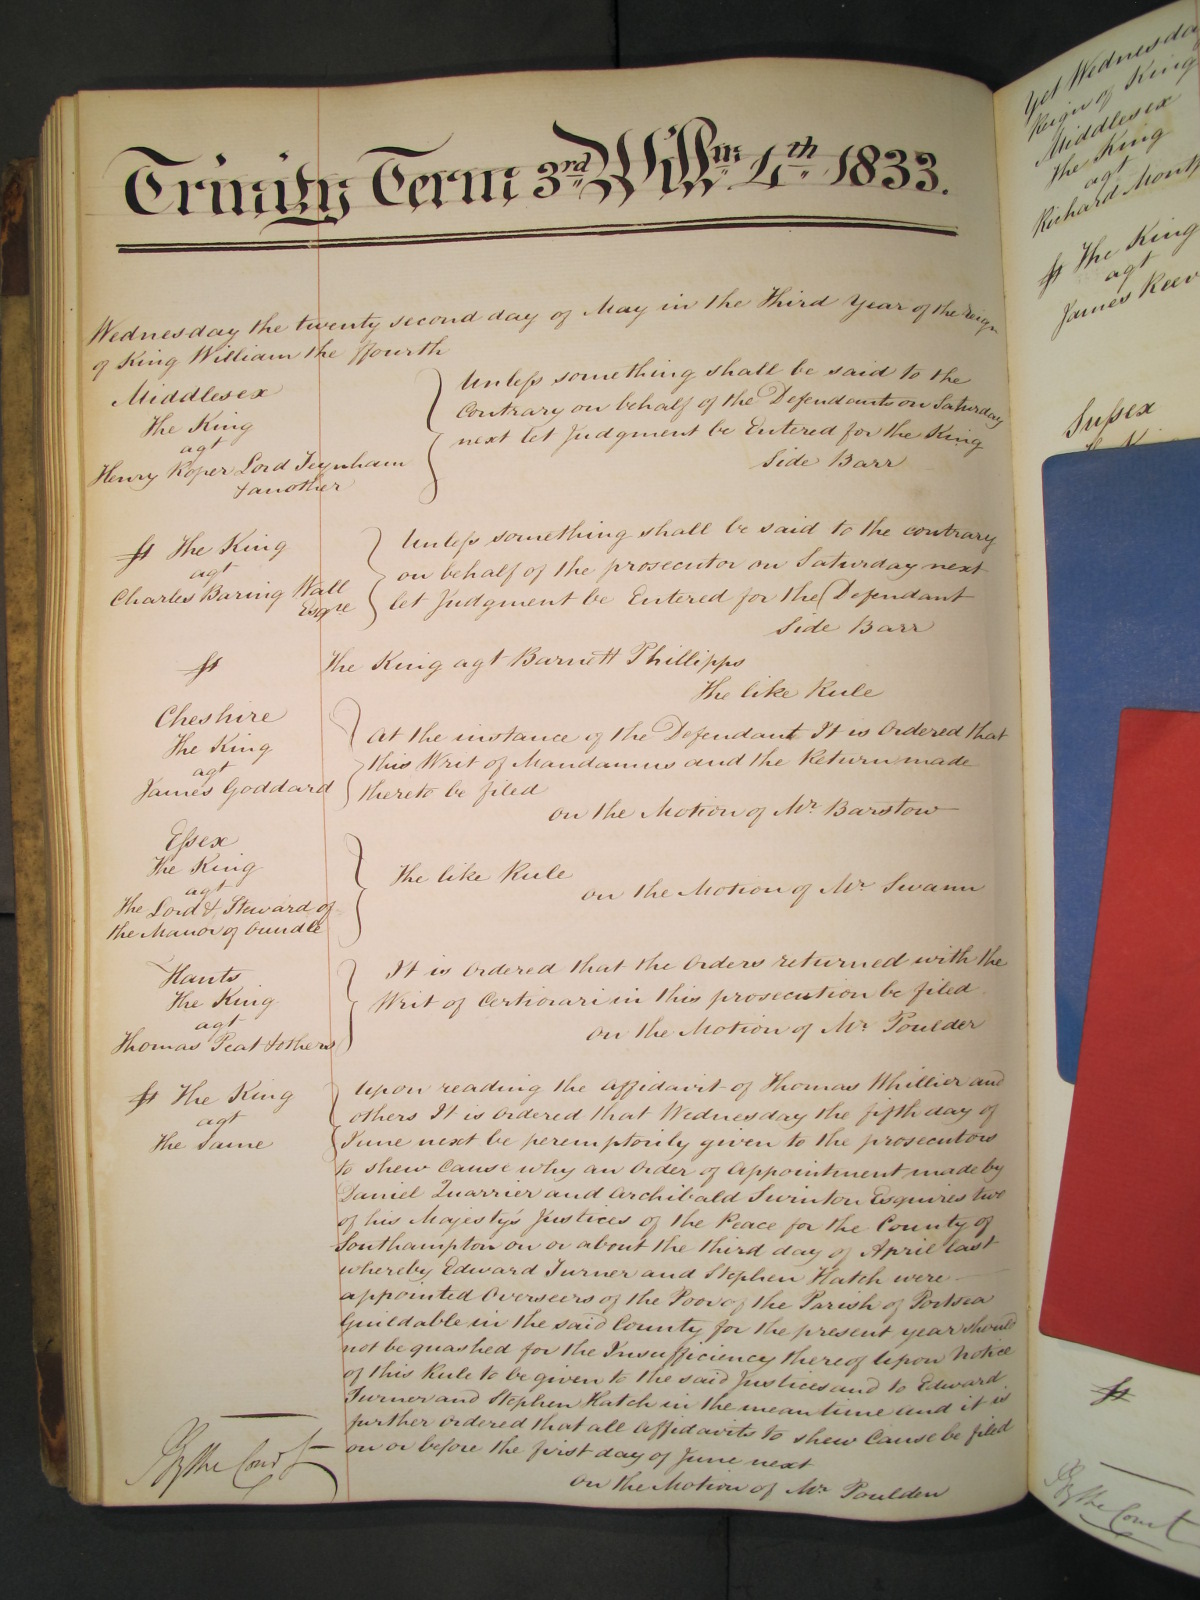 Trinity Term 3rd Willm 4th 1833.
Wednesday the twenty second day of May in the Third Year of the reign
of King William the ffourth
Middlesex
The King
agt
Henry Roper Lord Teynham
& another
Unless something shall be said to the
Contrary on behalf of the Defendants on Saturday
next let Judgment be Entered for the King
Side Barr
The King
agt
Charles Baring Wall
Esqre
Unless something shall be said to the contrary
on behalf of the prosecutor on Saturday next
let Judgment be Entered for the Defendant
Side Barr
The King agt Barnett Phillipps
The like Rule
Cheshire
The King
agt
James Goddard
At the instance of the Defendant It is Ordered that
this Writ of Mandamus and the Return made
thereto be filed
on the Motion of Mr. Barstow
Essex
The King
agt
the Lord & Steward of
the Manor of Oundle
The like Rule
on the Motion of Mr. Swann
Hants
The King
agt
Thomas Peat & others
It is Ordered that the Orders returned with the
Writ of Certiorari in this prosecution be filed
on the Motion of Mr. Poulden
The King
agt
The Same
Upon reading the affidavit of Thomas Whillier and
others It is Ordered that Wednesday the fifth day of
June next be peremptorily given to the prosecutors
to shew Cause why an Order of Appointment made by
Daniel Quarrier and Archibald Swinton Esquires two
of his Majesty's Justices of the Peace for the County of
Southampton on or about the third day of April last
whereby Edward Turner and Stephen Hatch were
appointed Overseers of the Poor of the Parish of Portsea
Guildable in the said County for the present year should
not be quashed for the Insufficiency thereof Upon Notice
of this Rule to be given to the said Justices and to Edward
Turner and Stephen Hatch in the mean time and it is
further ordered that all affidavits to shew Cause be filed
on or before the first day of June next
on the Motion of Mr. Poulden
By the Court
Yet Wednesday
Reign of King
Middlesex
The King
agt
Richard
The King
agt
James
Sussex
By the Court